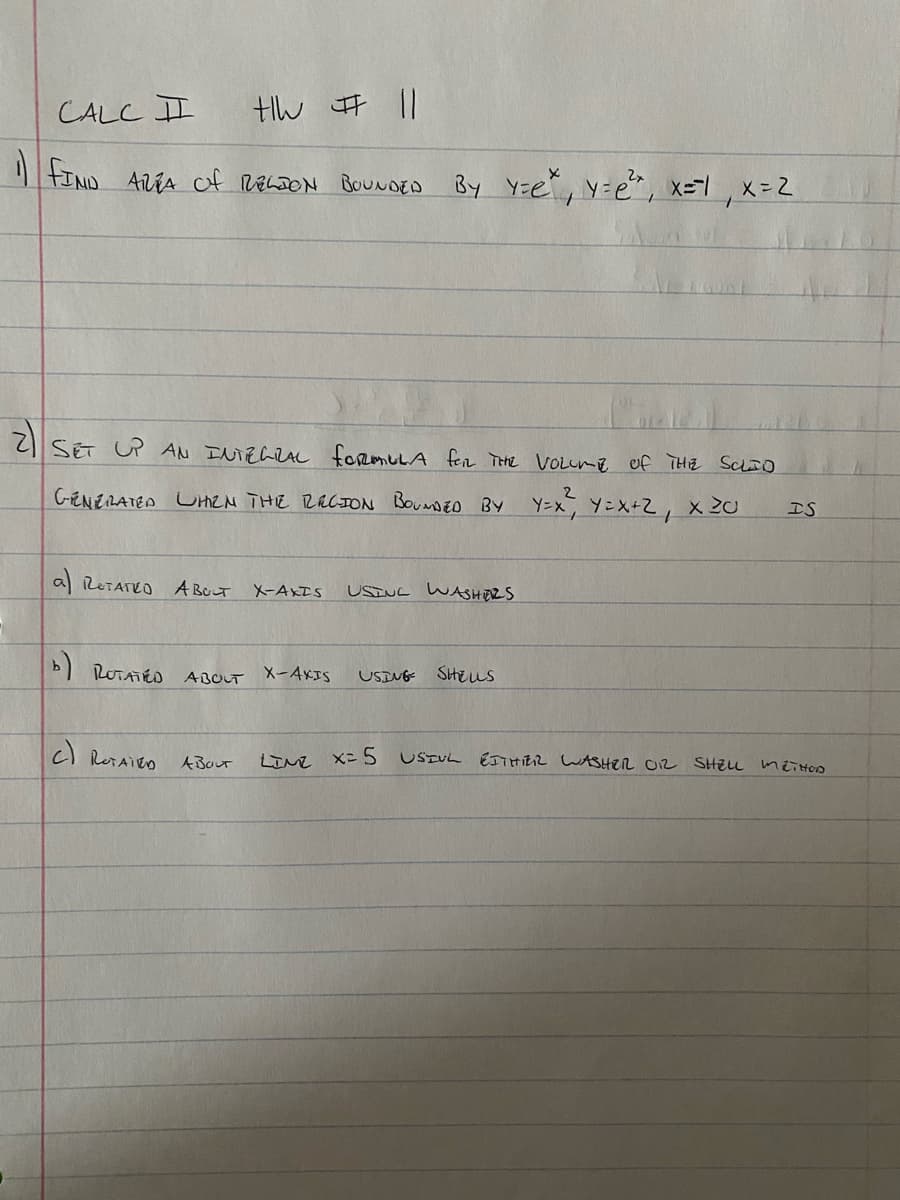 CALC II HW # 11
1) FIND AREA OF REGION BOUNDED BY y=eˣ, y=e²ˣ, x=-1, x=2
2) SET UP AN INTEGRAL FORMULA FOR THE VOLUME OF THE SOLID
GENERATED WHEN THE REGION BOUNDED BY y=x², y=x+2, x≥0 IS
a) ROTATED ABOUT X-AXIS USING WASHERS
b) ROTATED ABOUT X-AXIS USING SHELLS
c) ROTATED ABOUT LINE x=5 USING EITHER WASHER OR SHELL METHOD